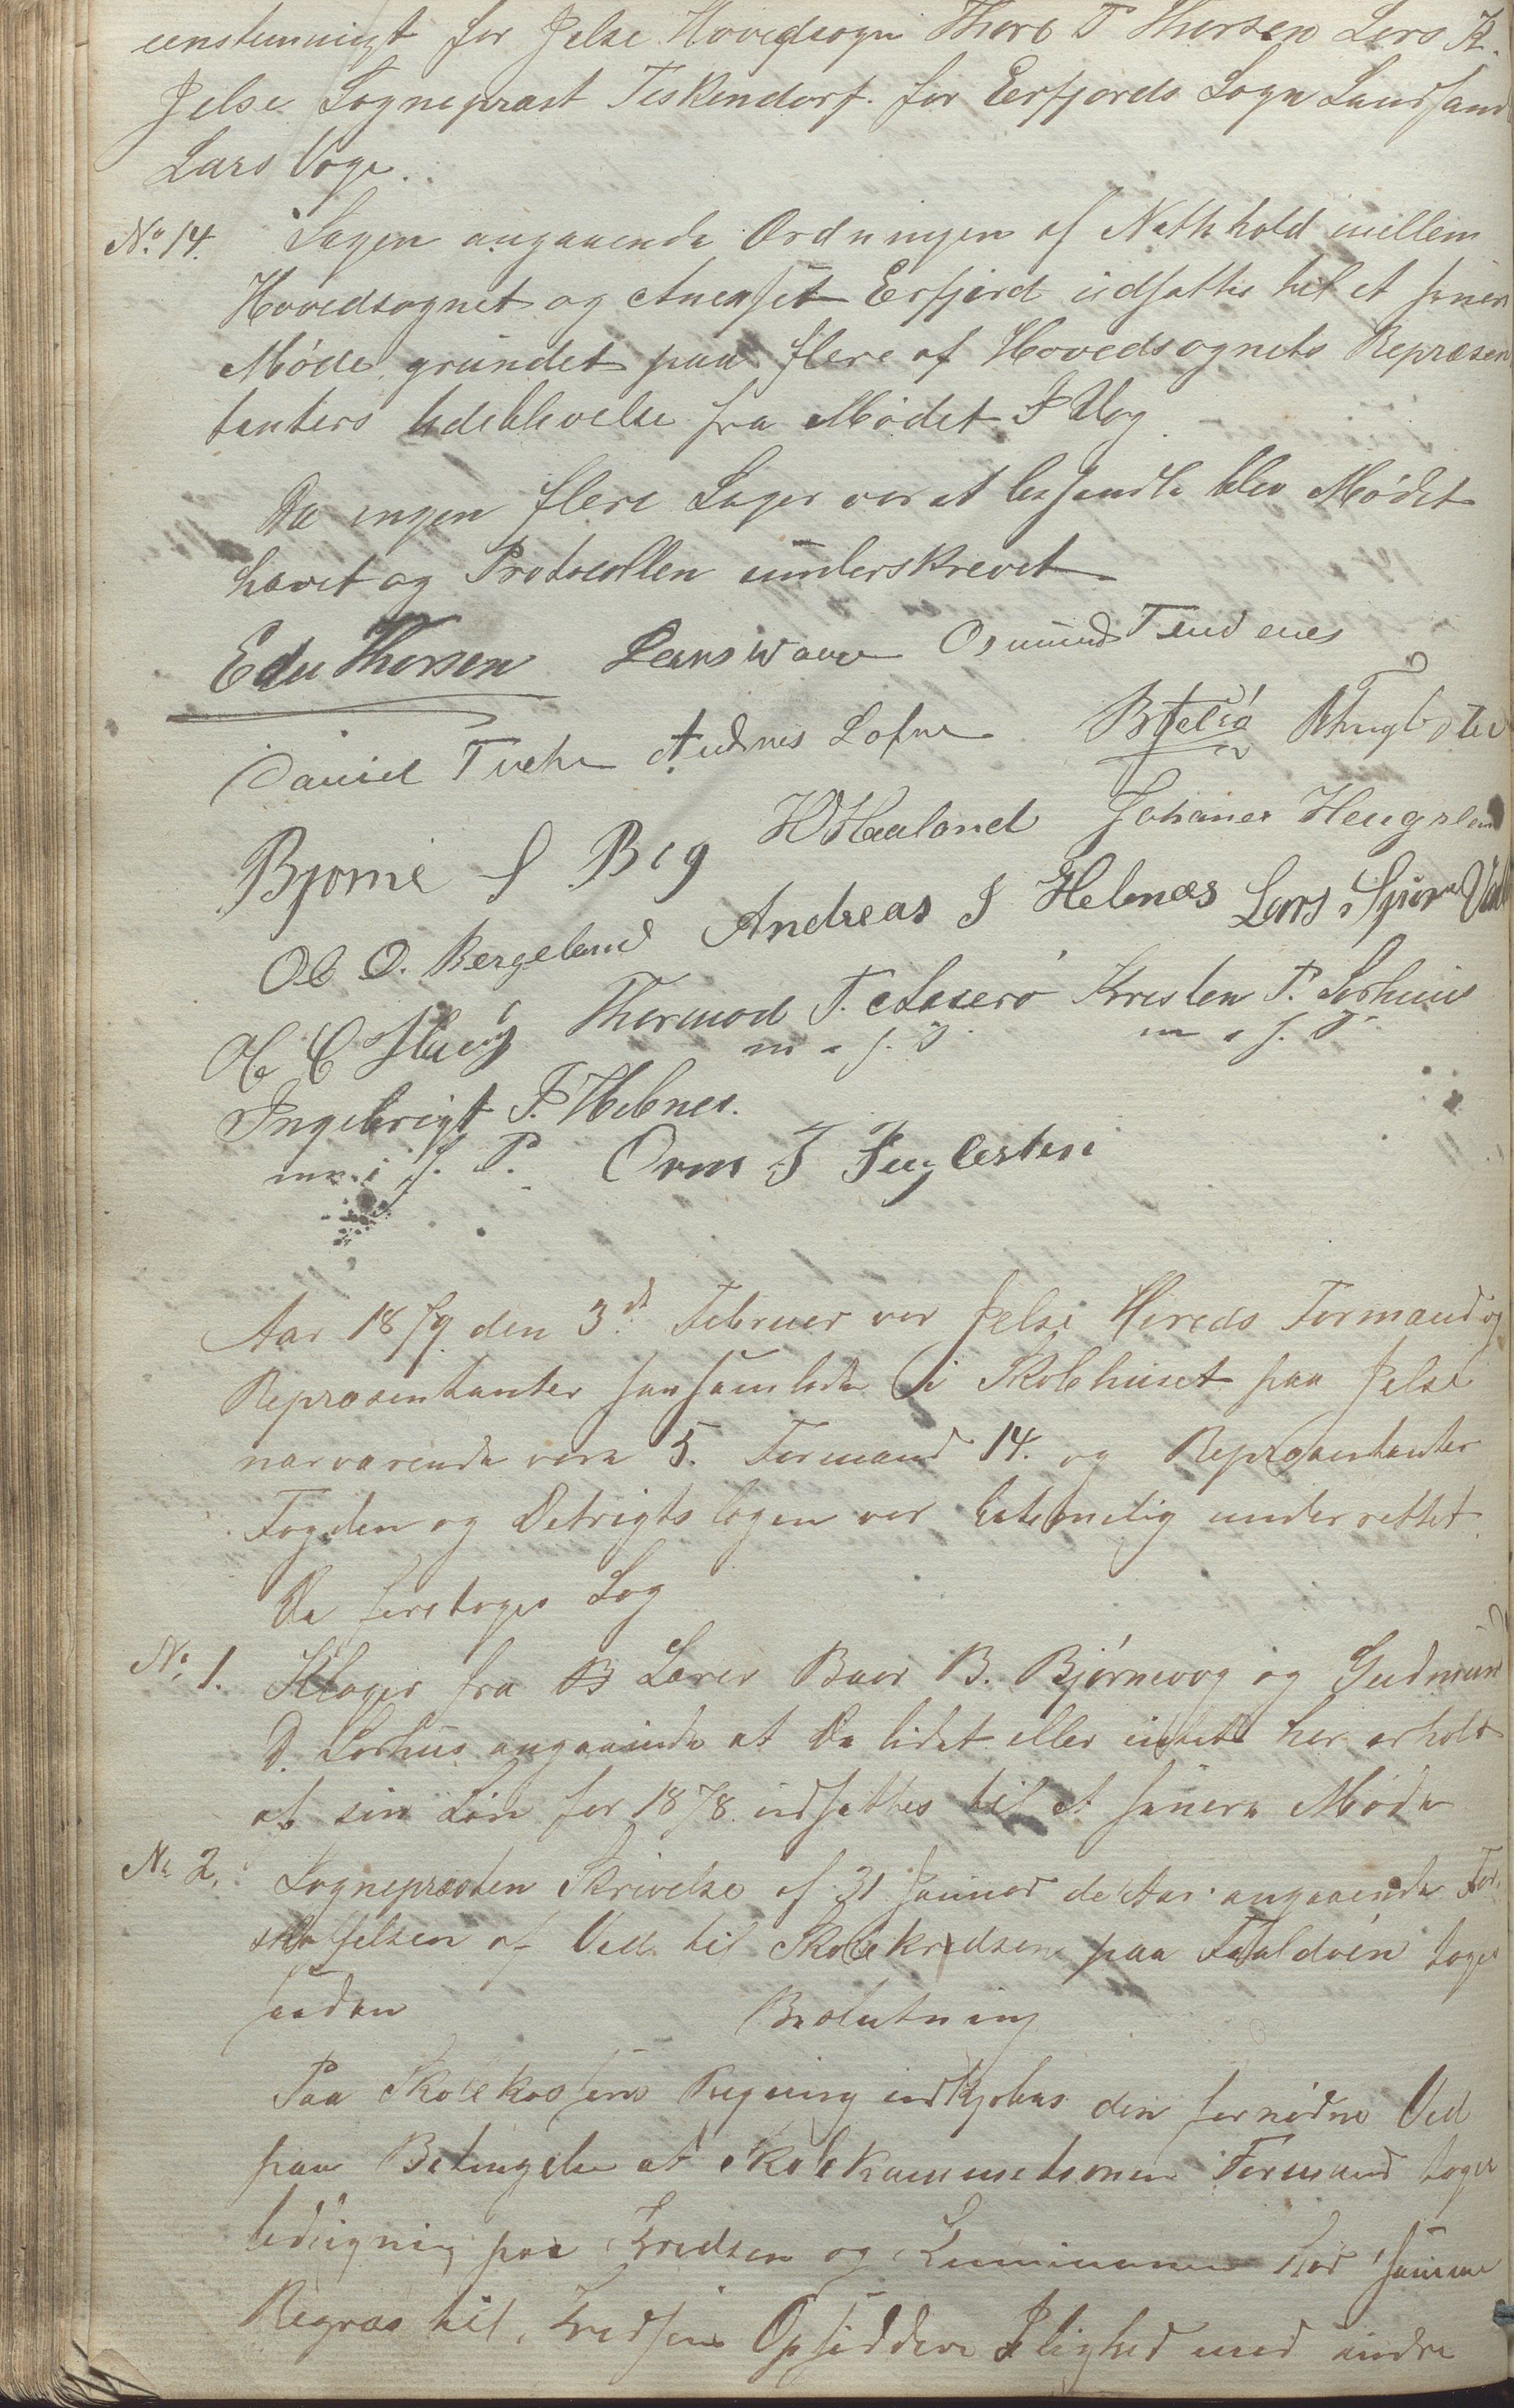 eenstemmigt for Jelse Hovedsogn Thore T Thorsen Lars K.
Jelse Sognepræst Teskendorf. for Erfjords Sogn Landhand
Lars Vage.
No. 14. Sagen angaaende Ordningen af Nathhold mellem
Hovedsognet og Anexset Erfjord udsattes til et sener
Møde grundet paa flere af Hovedsognets Repræsen
tanters Udeblevelse fra Mødet I Dag
Da ingen flere Sager var at behandle blev Mødet
hævet og Protocollen underskrevet
Edu Thorsen Lars Waage Osmund Tendenes
Daniel Tveke Audnes Lofne B Jelsø
Bjorne S Berg H Haaland Johanes Hengslen
Ole O. Bergeland Andreas J Hebnæs Lars
Ole C Thormod T. Aaserø Kresten P. Sørhuus
m. i. f. P. m. i. f. P.
Ingebrigt T. Hebnes.
m. i. f. P. Orm T Fuglesten
Aar 1879 den 3de Februer var Jelse Hereds Formænd og
Repræsentanter forsamlede i Skolehuset paa Jelse
nærværende vare 5. Formænd 14. og Repræsentanter
Fogden og Distrigtslægen var betimelig underrettet.
Da foretoges Sag
No. 1. Klager fra Lærer Baar B. Bjørnevog og Gudmun
D. Sørhus angaaende at De lidet eller intet har erholdt
af sin Løn for 1878 udsattes til et senere Møde
No. 2. Sognepræsten Skrivelse af 31 Januar de Aar angaaende For-
skaffelsen af Ved til Skolekredsen paa Foldøen toges
saadan Beslutning
Paa Skolekassens Regning indkjøbes den fornødne Ved
paa Betingelse at Skolekommissionens Formand toger
Udligning paa Kredsen og Kommunen har samme
Regres til Kredsens Opsiddere I lighed med andre